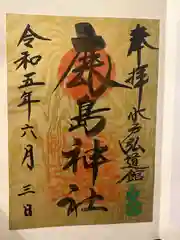 奉拝
水戸弘道館
鹿島神社
令和五年六月三日